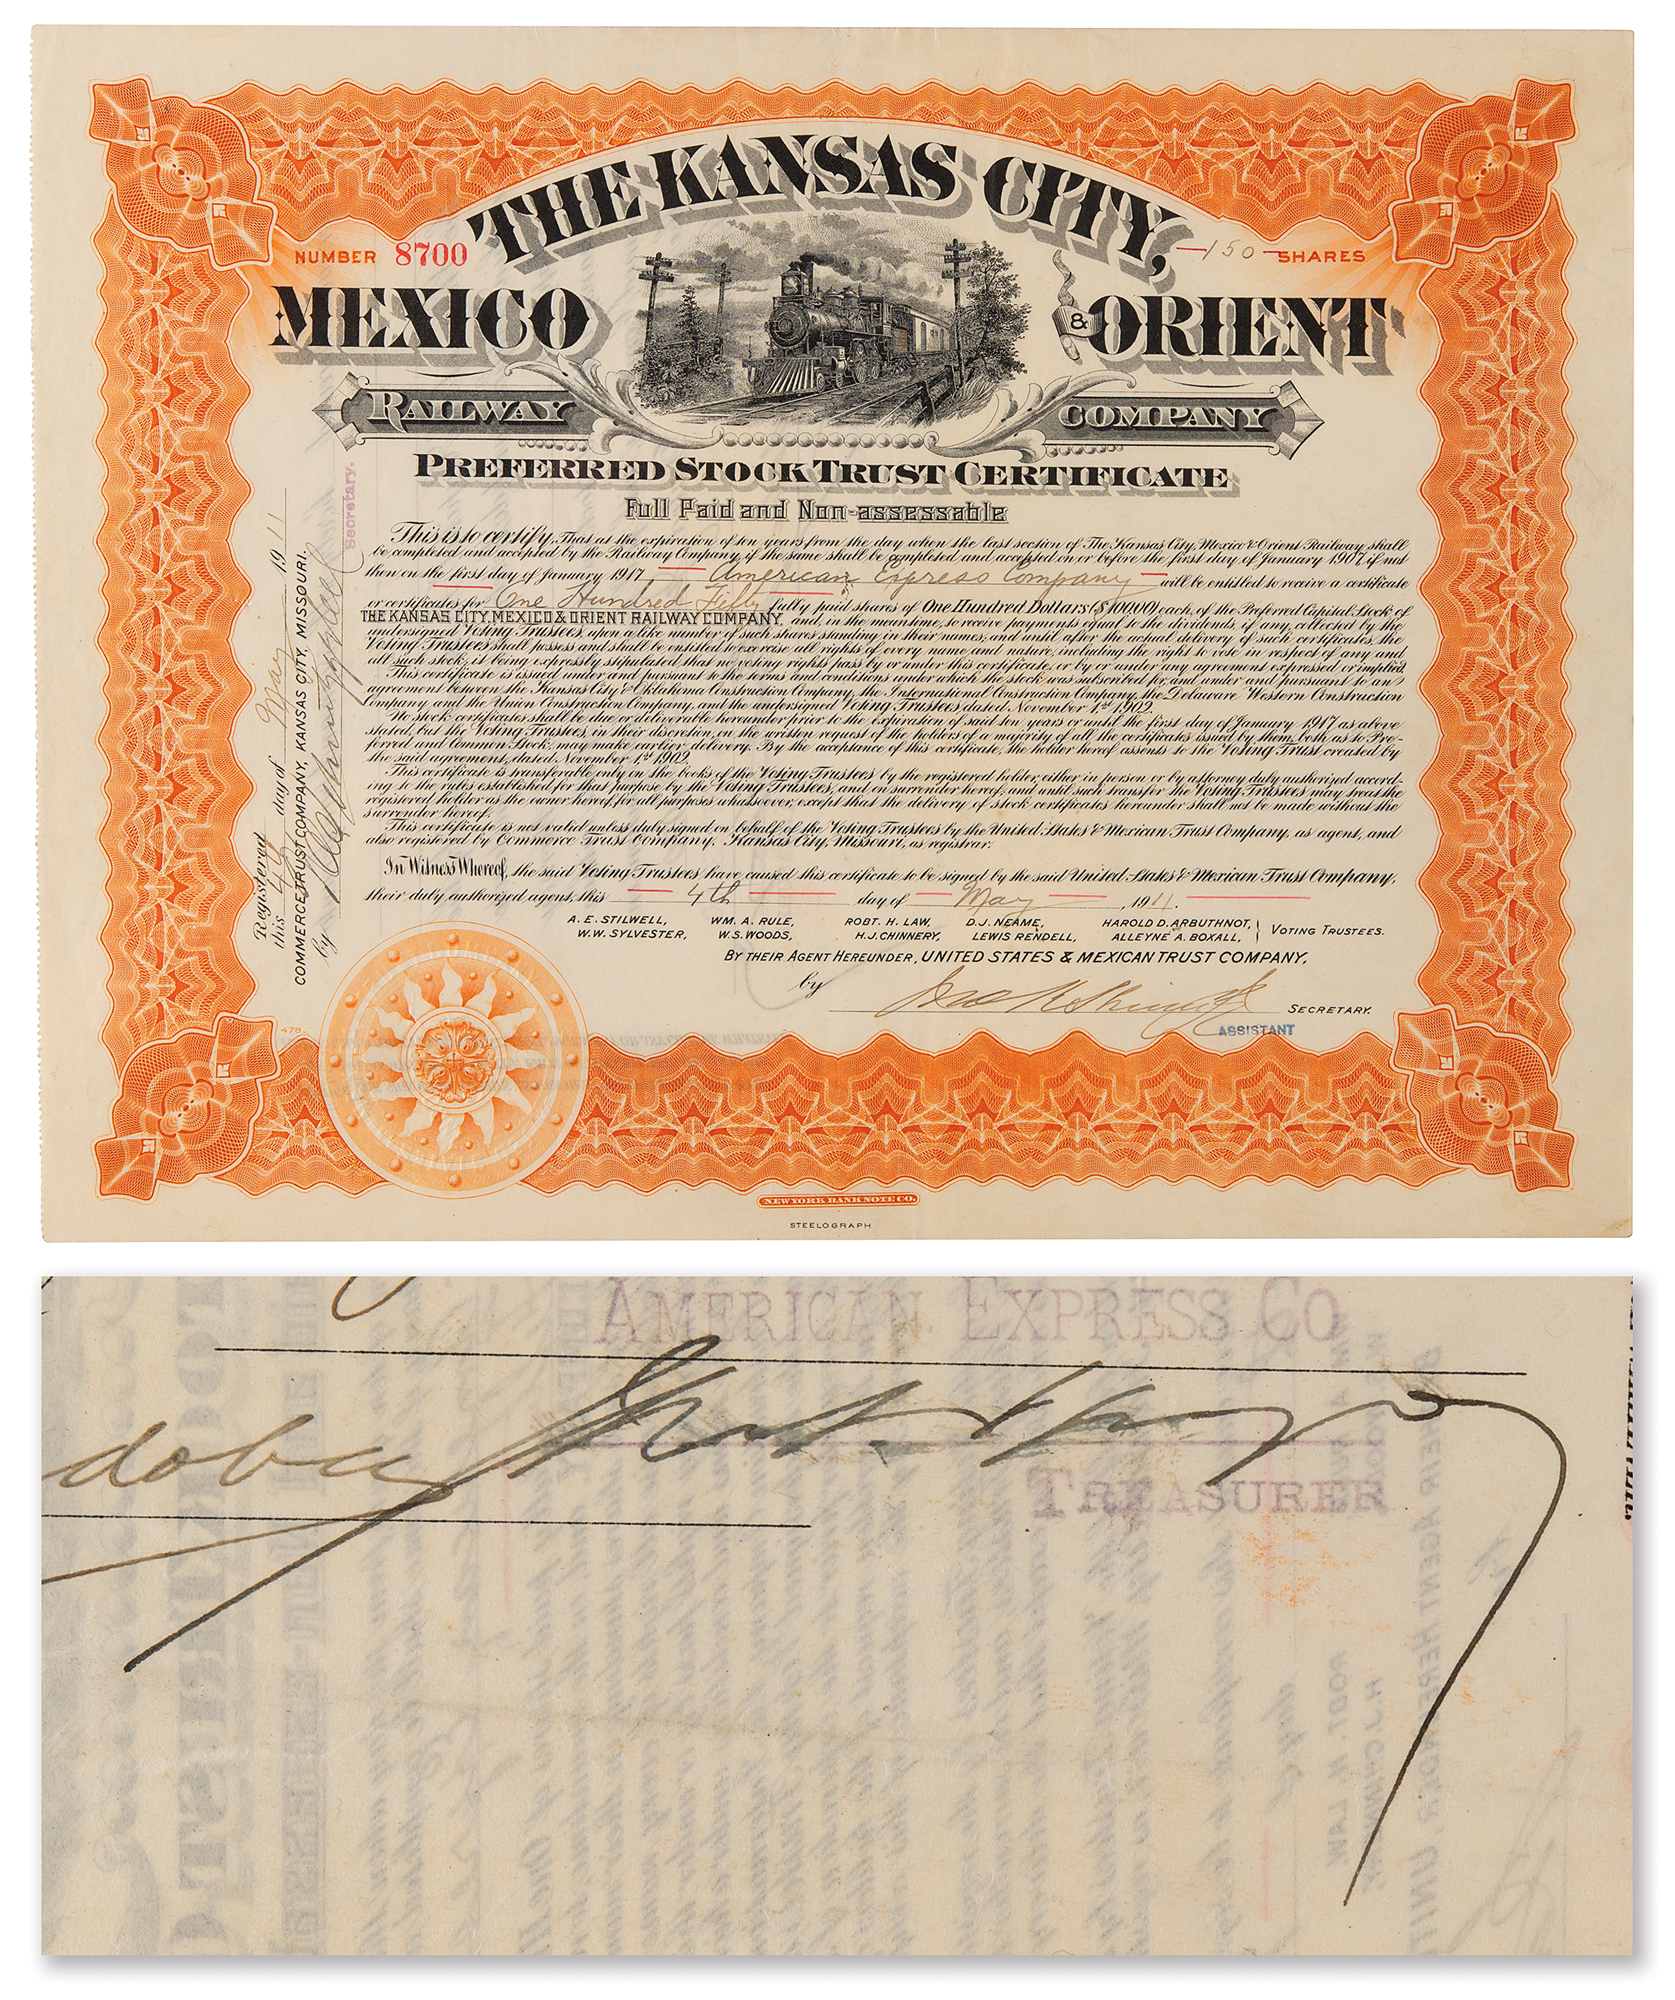 THE KANSAS CITY,
NUMBER 8700
150 SHARES
MEXICO & ORIENT
RAILWAY COMPANY
PREFERRED STOCK TRUST CERTIFICATE
Full Paid and Non-assessable
This is to certify, That at the expiration of ten years from the day when the last section of The Kansas City, Mexico & Orient Railway, shall
be completed and accepted by the Railway Company, if the same shall be completed and accepted on or before the first day of January 1907, if not
then on the first day of January 1917, American Express Company will be entitled to receive a certificate
or certificates for One Hundred Fifty fully paid shares of One Hundred Dollars ($100.00) each, of the Preferred Capital Stock of
THE KANSAS CITY, MEXICO & ORIENT RAILWAY COMPANY, and, in the meantime, to receive payments equal to the dividends, if any, collected by the
undersigned Voting Trustees, upon a like number of such shares standing in their names, and until after the actual delivery of such certificates, the
Voting Trustees shall possess and shall be entitled to exercise all rights of every name and nature, including the right to vote in respect of any and
all such stock, it being expressly stipulated that no voting rights pass by or under this certificate, or by or under any agreement expressed or implied.
This certificate is issued under and pursuant to the terms and conditions under which the stock was subscribed for, and under and pursuant to an
agreement between the Kansas City & Oklahoma Construction Company, the International Construction Company, the Delaware Western Construction
Company and the Union Construction Company, and the undersigned Voting Trustees, dated November 1st 1902.
No stock certificates shall be due or deliverable hereunder prior to the expiration of said ten years or until the first day of January 1917 as above
stated, but the Voting Trustees, in their discretion, on the written request of the holders of a majority of all the certificates issued by them, both as to Pre-
ferred and Common Stock, may make earlier delivery. By the acceptance of this certificate, the holder hereof assents to the Voting Trust created by
the said agreement, dated November 1st 1902.
This certificate is transferable only on the books of the Voting Trustees by the registered holder, either in person or by attorney duly authorized accord-
ing to the rules established for that purpose by the Voting Trustees, and on surrender hereof, and until such transfer the Voting Trustees may treat the
registered holder as the owner hereof for all purposes whatsoever, except that the delivery of stock certificates hereunder shall not be made without the
surrender hereof.
This certificate is not valid unless duly signed on behalf of the Voting Trustees by the United States & Mexican Trust Company, as agent, and
also registered by Commerce Trust Company, Kansas City, Missouri, as registrar.
In Witness Whereof, the said Voting Trustees have caused this certificate to be signed by the said United States & Mexican Trust Company,
their duly authorized agent, this 4th day of May, 1911.
A. E. STILWELL, WM. A. RULE, ROBT. H. LAW, D. J. NEAME, HAROLD D. ARBUTHNOT,
W. W. SYLVESTER, W. S. WOODS, H. J. CHINNERY, LEWIS RENDELL, ALLEYNE A. BOXALL, VOTING TRUSTEES.
BY THEIR AGENT HEREUNDER, UNITED STATES & MEXICAN TRUST COMPANY,
by SECRETARY.
ASSISTANT
Registered
this 4 day of May 1911
COMMERCE TRUST COMPANY, KANSAS CITY, MISSOURI.
by
Secretary.
478
NEW YORK BANK NOTE CO.
STEELOGRAPH
AMERICAN EXPRESS CO
TREASURER